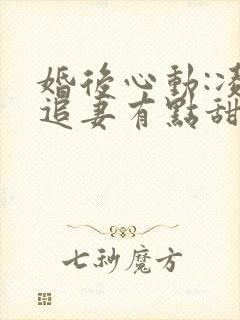 婚後心動:凌
追妻有點甜
七秒魔方